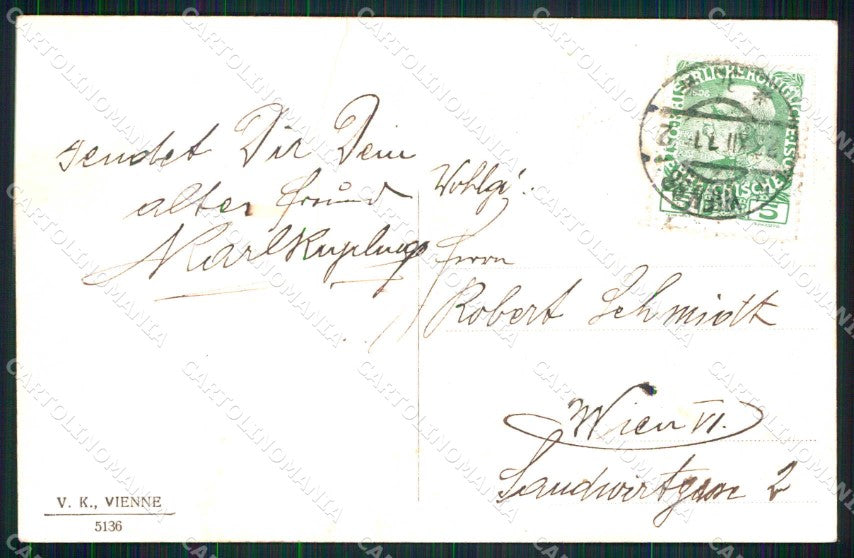 sendet Dir Dein
alter Freund
Karl
Wohlg.
Herrn
Robert Schmidt
Wien VI.
Landwirtgasse 2
V. K., VIENNE
5136
5
CARTOLINOMANIA